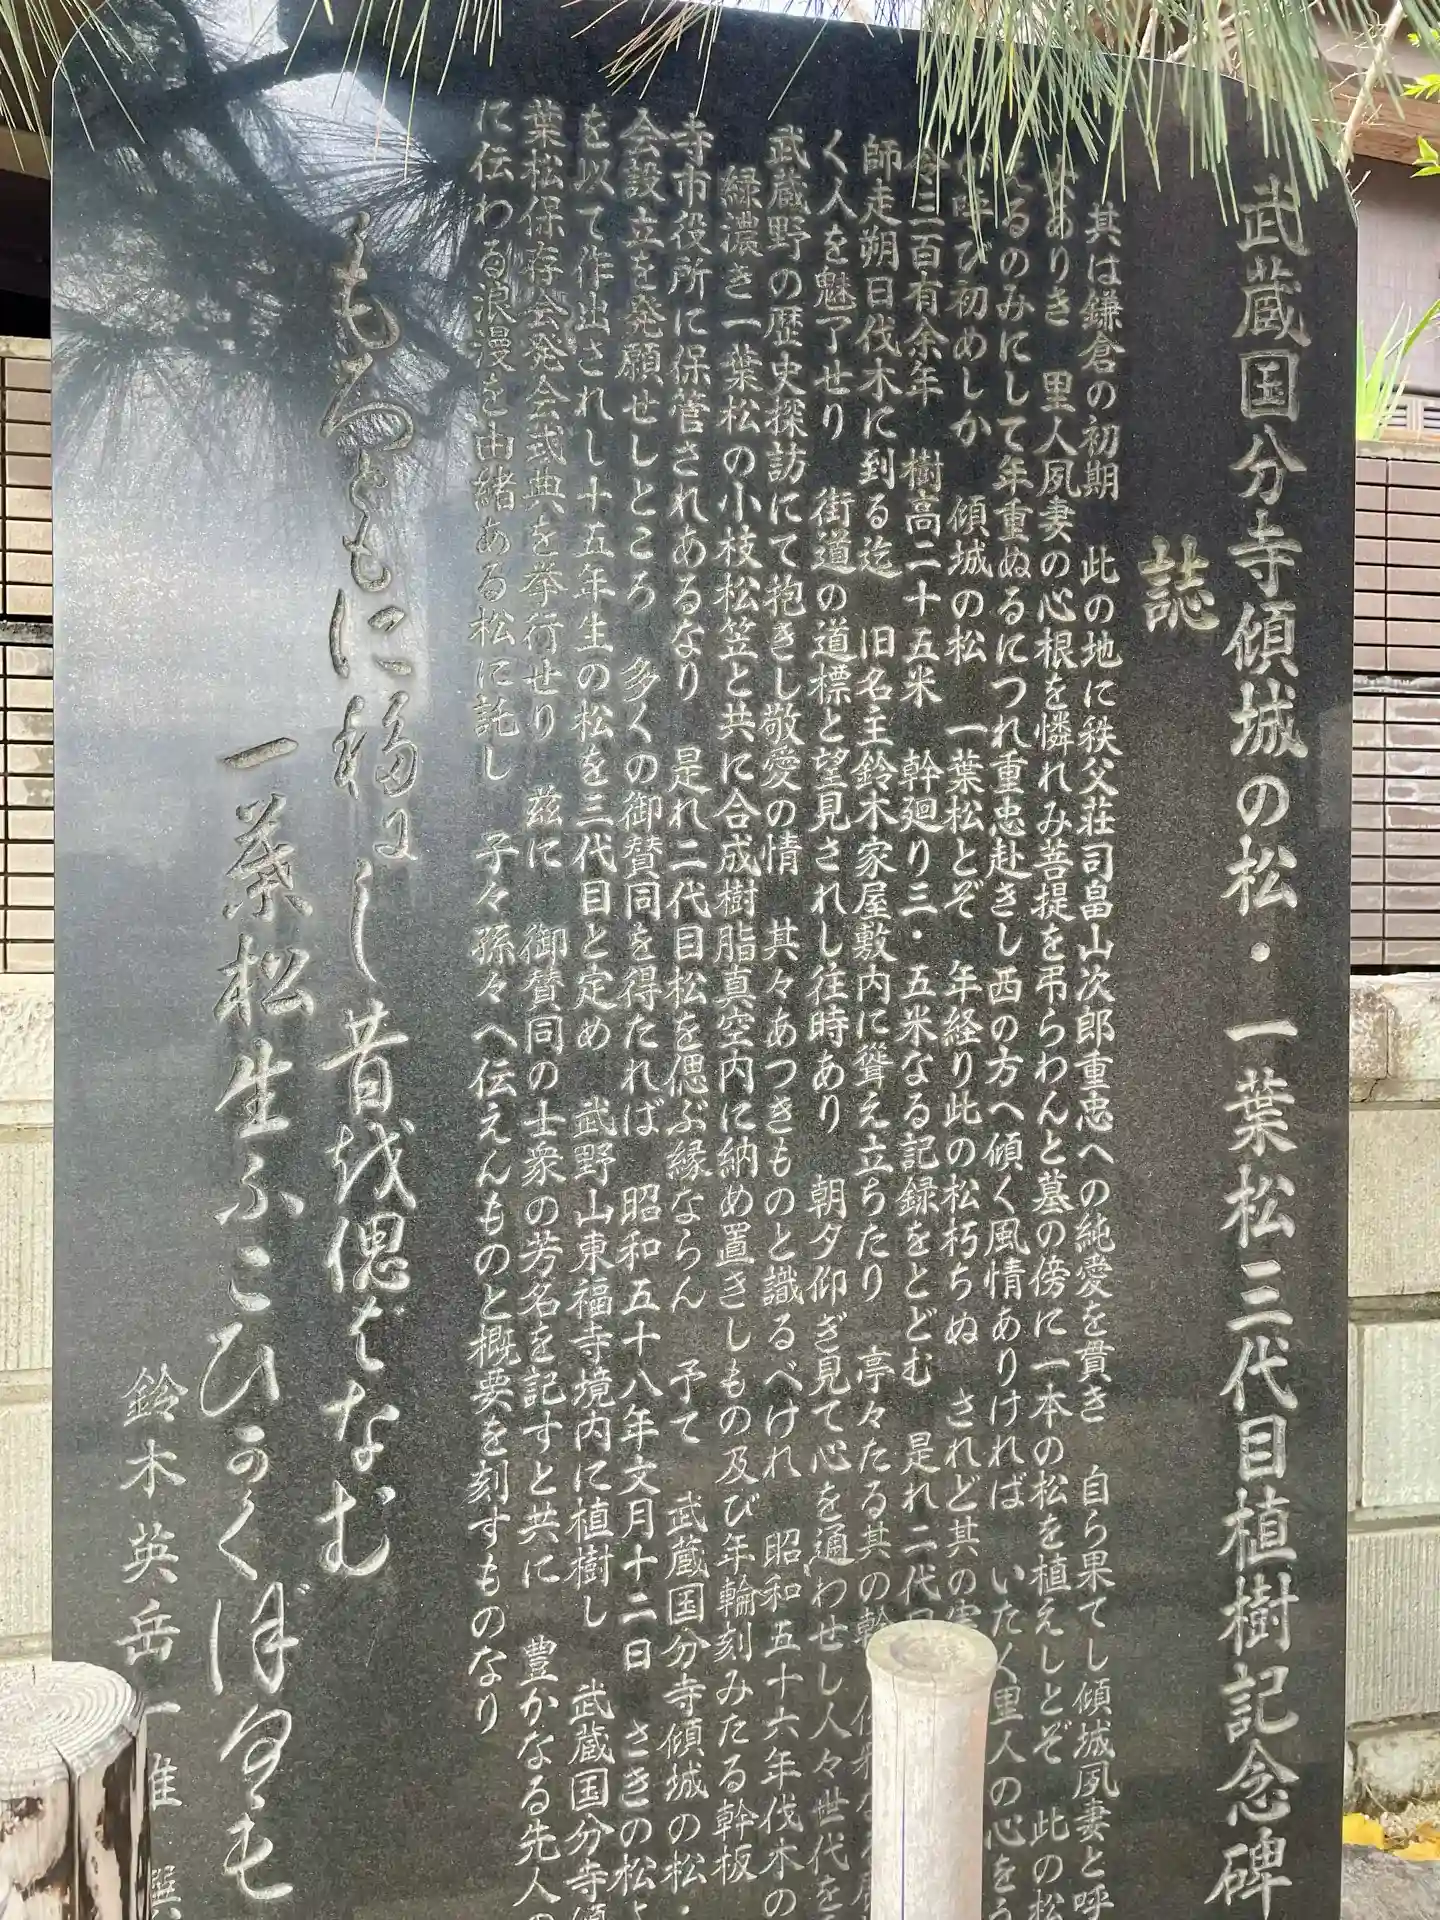 武蔵国分寺傾城の松・一葉松三代目植樹記念碑
誌
其は鎌倉の初期　此の地に秩父荘司畠山次郎重忠への純愛を貫き　自ら果てし傾城夙妻と呼
ありき　里人夙妻の心根を憐れみ菩提を弔らわんと墓の傍に一本の松を植えしとぞ　此の松
るのみにして年重ぬるにつれ重忠赴きし西の方へ傾く風情ありければ　いたく里人の心をう
が呼び初めしか　傾城の松　一葉松とぞ　年経り此の松朽ちぬ　されど其の実
三百有余年　樹高二十五米　幹廻り三・五米なる記録をとどむ　是れ二代目
師走朔日伐木に到る迄　旧名主鈴木家屋敷内に聳え立ちたり　亭々たる其の幹
く人を魅了せり　街道の道標と望見されし往時あり　朝夕仰ぎ見て心を通わせし人々世代を
武蔵野の歴史探訪にて抱きし敬愛の情　其々あつきものと識るべけれ　昭和五十六年伐木の
緑濃き一葉松の小枝松笠と共に合成樹脂真空内に納め置きしもの及び年輪刻みたる幹板
寺市役所に保管されあるなり　是れ二代目松を偲ぶ縁ならん　予て　武蔵国分寺傾城の松・
会設立を発願せしところ　多くの御賛同を得たれば　昭和五十八年文月十二日　さきの松
を以て作出されし十五年生の松を三代目と定め　武野山東福寺境内に植樹し　武蔵国分寺傾
葉松保存会発会式典を挙行せり　茲に　御賛同の士衆の芳名を記すと共に　豊かなる先人の
に伝わる浪漫を由緒ある松に託し　子々孫々へ伝えんものと概要を刻すものなり
もろともに移にし昔越偲ばなむ
一葉松生ふこひのくぼの
鈴木英岳一雄　撰